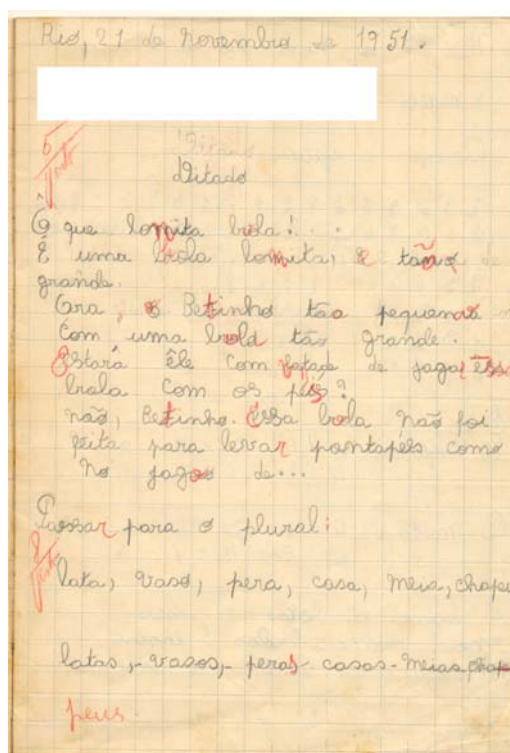 Rio, 21 de Novembro de 1951.
Ditado
Ô que bonita bola!...
É uma bola bonita, e tão de
grande.
Ora, o Betinho tão pequeno
com uma bola tão grande.
Estará êle com de jogar essa
bola com os pés?
não, Betinho. Essa bola não foi
feita para levar pontapés como
no jogo de...
Passar para o plural:
lata, vaso, pera, casa, meia, chapeu
latas,- vasos,- peras- casas- meias, chape
peus.